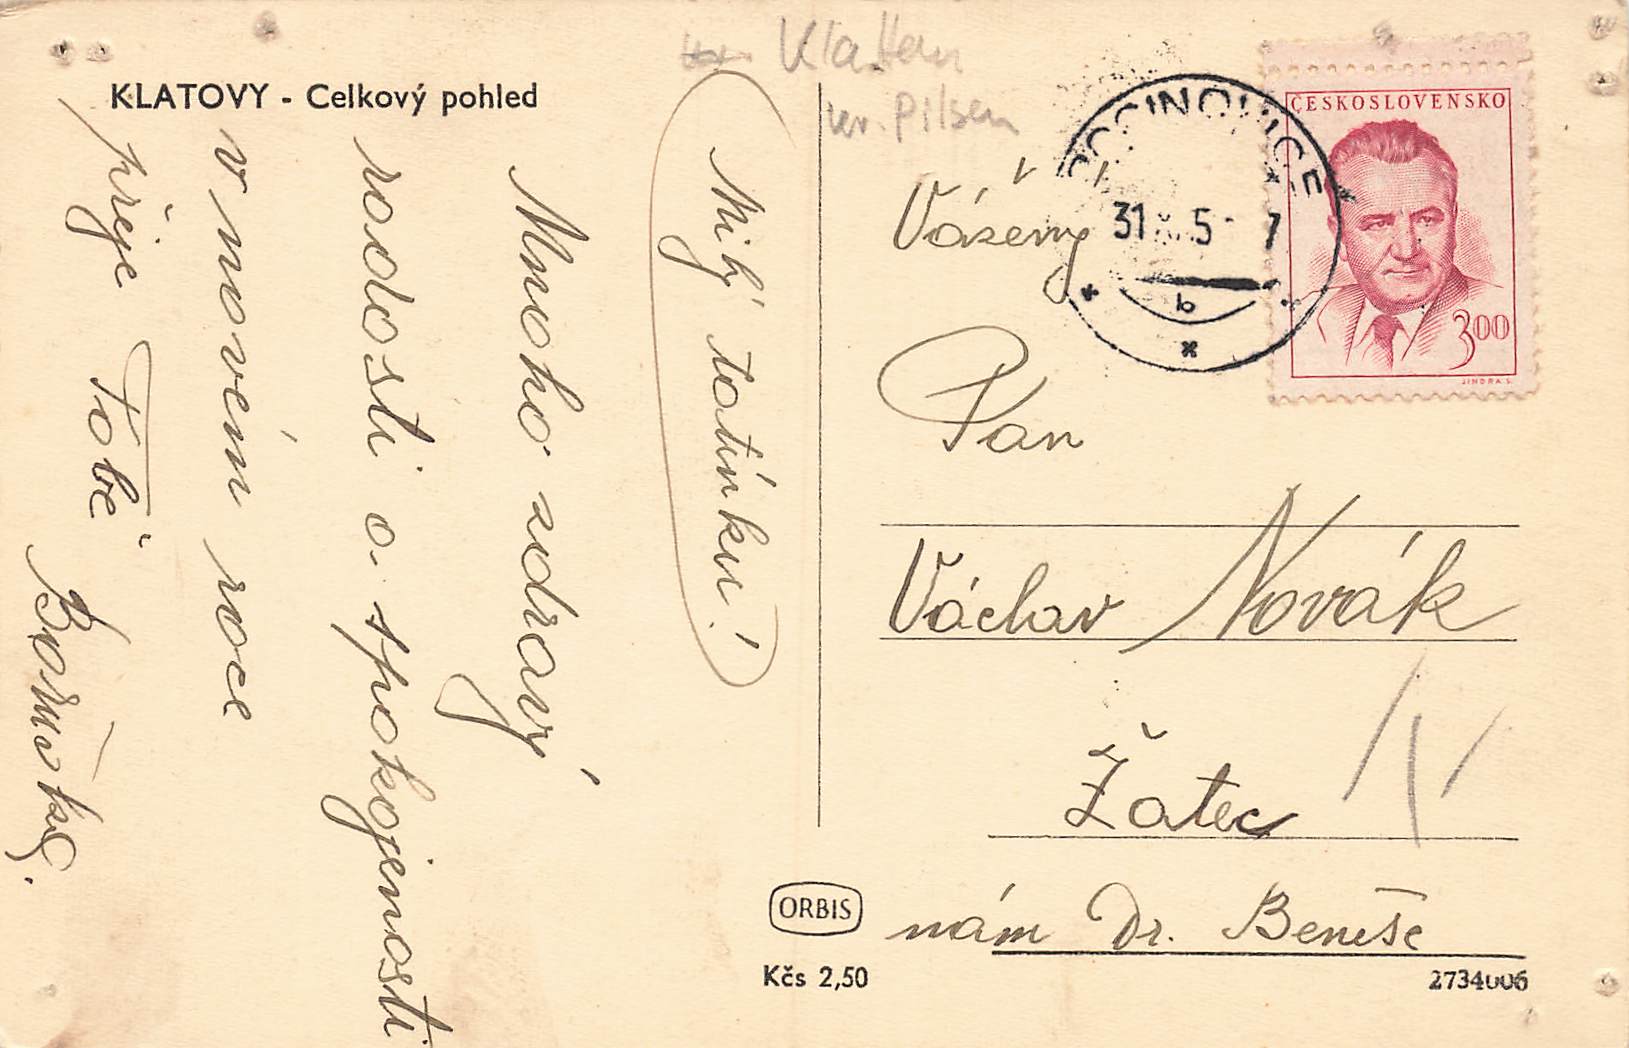 KLATOVY - Celkový pohled
Milý tatínku!
Mnoho zdraví
radosti a spokojenosti
v novém roce
přeje Tobě
Klattau
Pilsen
Vážený
Pan
Václav Novák
Žatec
nám Dr. Beneše
ČESKOSLOVENSKO
3.00
JINDRA S.
31
5
7
b
ORBIS
Kčs 2,50
2734006